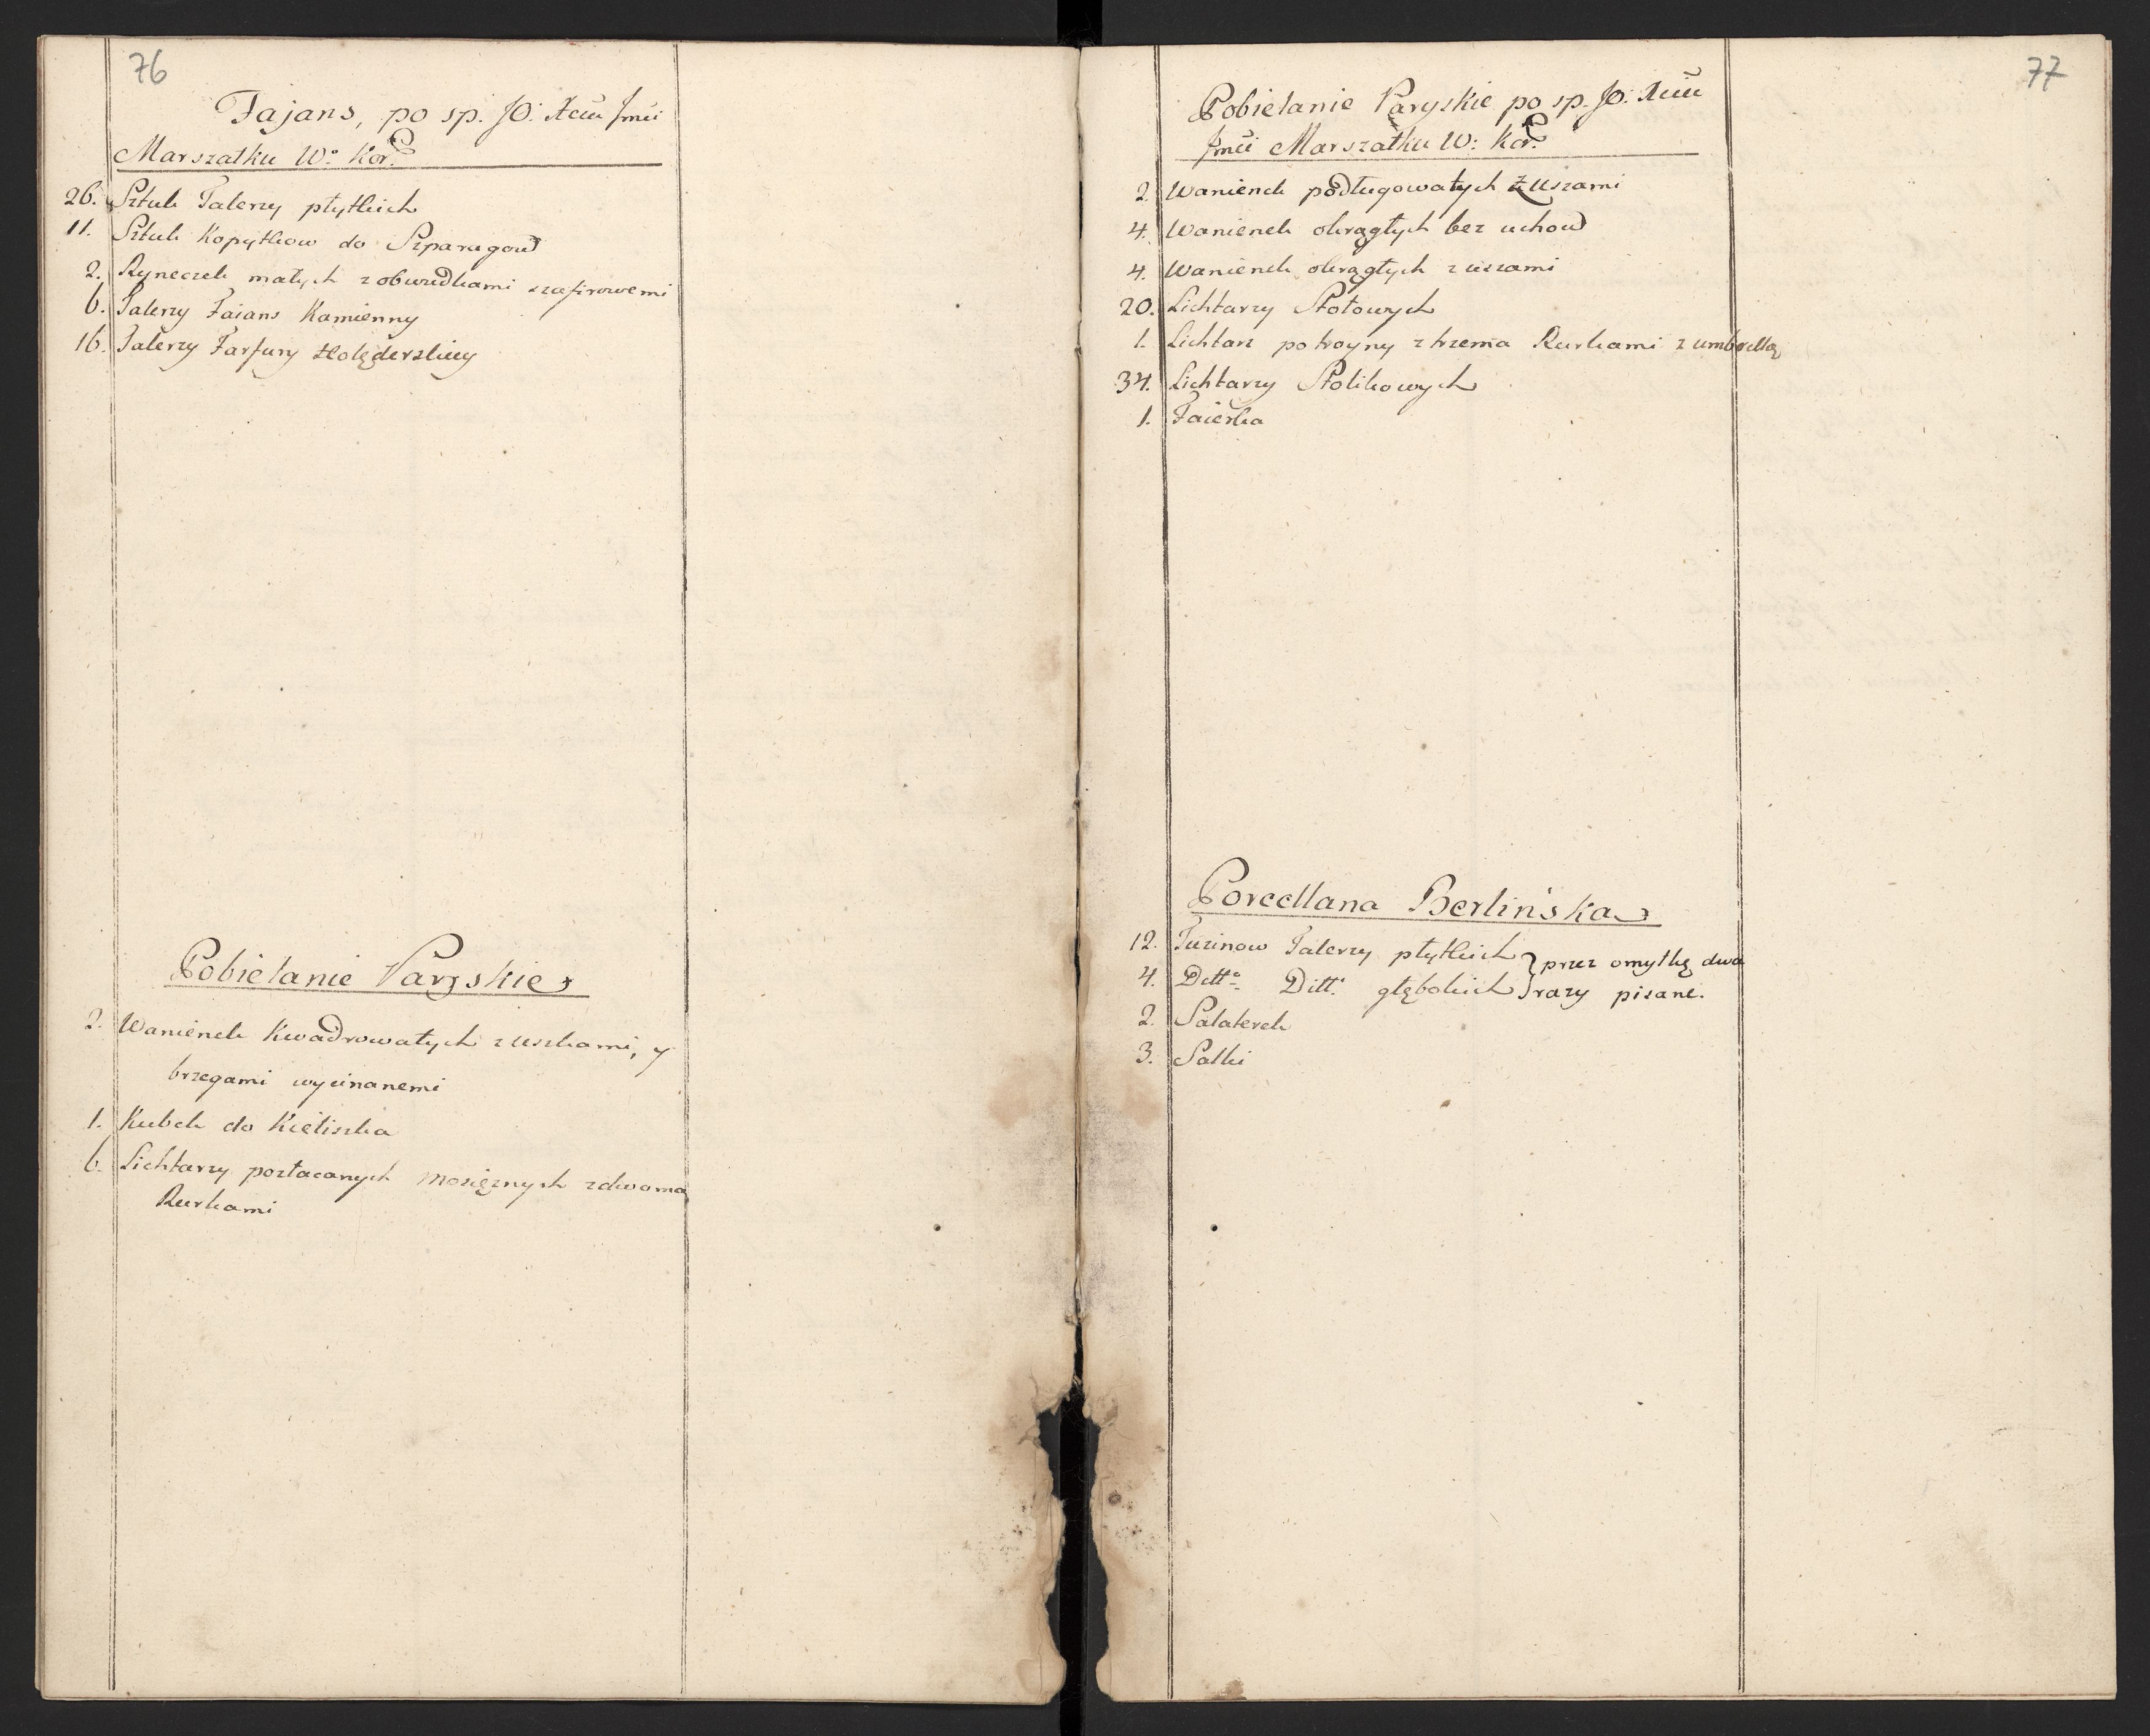 76
Fajans, po sp. JO. Xciu Jmći
Marszałku W: Kor:
26. Sztuk Talerzy płytkich
11. Sztuk Kopytkow do Szparagow
2. Ryneczek małych z obwudkami szafirowemi
6. Talerzy Faians Kamienny
16. Talerzy Farfury Holęderskiey
Pobielanie Paryskie
2. Wanienek Kwadrowatych z uszkami, y
brzegami wycinanemi
1. Kubek do Kieliszka
6. Lichtarzy pozłacanych mosiężnych z dwoma
Rurkami
77
Pobielanie Paryskie po sp. JO: Xciu
Jmći Marszałku W: Kor:
2. Wanienek podługowatych z Uszami
4. Wanienek okrągłych bez uchow
4. Wanienek okrągłych z uszami
20. Lichtarzy Stołowych
1. Lichtarz potroyny z trzema Rurkami z umbrellą
34. Lichtarzy Stolikowych
1. Faierka
Porcellana Berlińska
12. Tuzinow Talerzy płytkich } przez omyłkę dwa
4. Dett: Ditt: głębokich } razy pisane.
2. Salaterek
3. Salki